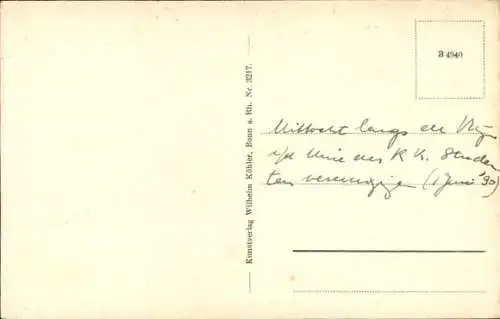 B 4940
Kunstverlag Wilhelm Köhler, Bonn a. Rh. Nr. 3217.
langs de
der R K. Studen
ten vereenigingen (1 Juni '30)